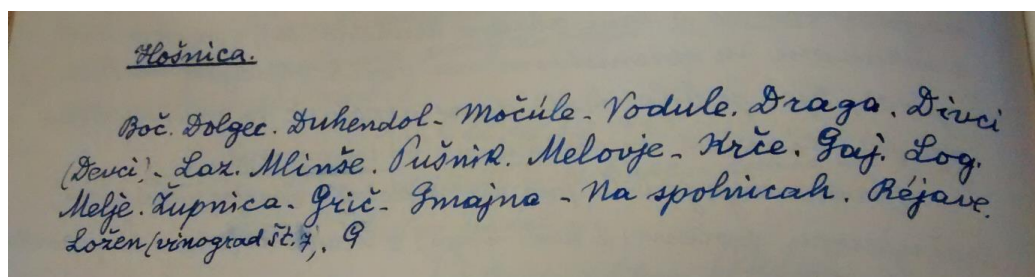 Hošnica.
Boč. Dolgec. Duhendol - Močúle - Vodule. Draga. Divci
(Devci) - Laz. Mlinše. Pušnik. Melovje - Krče. Gaj. Log.
Melje. Župnica - Grič - Gmajna - Na spolnicah. Réjave.
Ložen (vinograd št. 7). G